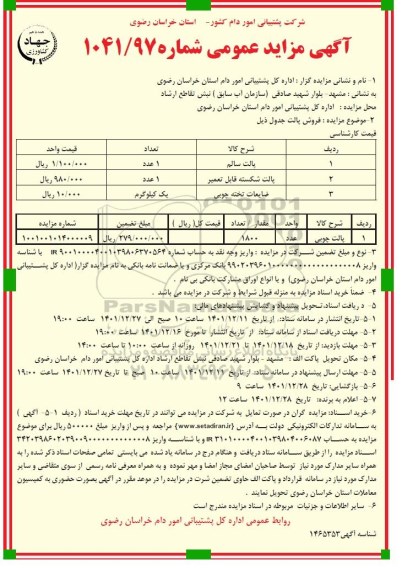 شرکت پشتیبانی امور دام کشور- استان خراسان رضوی
جهاد
کشاورزی
آگهی مزاید عمومی شماره ۱۰۴۱/۹۷
۱- نام و نشانی مزایده گزار : اداره کل پشتیبانی امور دام استان خراسان رضوی
به نشانی : مشهد- بلوار شهید صادقی (سازمان آب سابق ) نبش تقاطع ارشاد
محل مزایده : اداره کل پشتیبانی امور دام استان خراسان رضوی
۲-موضوع مزایده : فروش پالت جدول ذیل
قیمت کارشناسی
ردیف شرح کالا تعداد قیمت واحد
۱ پالت سالم ۱ عدد ۱/۱۰۰/۰۰۰ ریال
۲ پالت شکسته قابل تعمیر ۱ عدد ۹۸۰/۰۰۰ ریال
۳ ضایعات تخته چوبی یک کیلوگرم ۱۰/۰۰۰ ریال
ردیف شرح کالا واحد مقدار / تعداد قیمت کل( ریال ) مبلغ تضمین شماره مزایده
۱ پالت چوبی عدد ۱۸۰۰ ۲۷۹/۰۰۰/۰۰۰ ریال ۱۰۰۱۰۰۱۰۱۴۰۰۰۰۰۹
۳- نوع و مبلغ تضمین شرکت در مزایده : واریز وجه نقد به حساب شماره
بانک مرکزی و یا ضمانت نامه بانکی به نام مزایده گزار( اداره کل پشتیبانی
امور دام استان خراسان رضوی) و یا انواع اوراق مشارکت بانکی بی نام .
۴- ضمناً خرید اسناد مزایده به منزله قبول شرایط و شرکت در مزایده می باشد .
۵- دریافت اسناد، تحویل پیشنهاد و گشایش پیشنهادهای مالی:
۵-۱ تاریخ انتشار در سامانه ستاد: از تاریخ ۱۴۰۱/۱۲/۱۱ ساعت ۱۰ صبح الی ۱۴۰۱/۱۲/۲۷ ساعت ۱۹:۰۰
۵-۲ مهلت دریافت اسناد از سامانه ستاد: از تاریخ انتشار تا مورخ ۱۴۰۱/۱۲/۱۶ ساعت ۱۹:۰۰
۵-۳ مهلت بازدید: از تاریخ ۱۴۰۱/۱۲/۱۸ تا تاریخ ۱۴۰۱/۱۲/۲۱ روزانه از ساعت ۱۰:۰۰ تا ساعت ۱۴:۰۰
۵-۴ مکان تحویل پاکت الف : مشهد - بلوار شهید صادقی نبش تقاطع ارشاد اداره کل پشتیبانی امور دام خراسان رضوی
۵-۵ مهلت ارسال پیشنهاد در سامانه ستاد: از تاریخ ۱۴۰۱/۱۲/۱۷ ساعت ۱۰ صبح تا تاریخ ۱۴۰۱/۱۲/۲۷ ساعت ۱۹:۰۰
۵-۶ بازگشایی: تاریخ ۱۴۰۱/۱۲/۲۸ ساعت ۹
۵-۷ اعلام به برنده: تاریخ ۱۴۰۱/۱۲/۲۸ ساعت ۱۲
۶- خرید اسناد: مزایده گران در صورت تمایل به شرکت در مزایده می توانند در تاریخ مهلت خرید اسناد ( ردیف ۱-۵ آگهی )
به سامانه تدارکات الکترونیکی دولت به آدرس (www.setadiran.ir) مراجعه و پس از واریز مبلغ ۵۰۰۰۰۰ ریال برای موضوع
مزایده به حساب
اسناد مزایده را از طریق سامانه ستاد دریافت و هنگام درج در سامانه یاد شده می بایستی تمامی صفحات اسناد ذکر شده را به
همراه سایر مدارک مورد نیاز توسط صاحبان امضای مجاز امضا و مهر نموده و به همراه معرفی نامه رسمی از سوی متقاضی و سایر
مدارک مورد نیاز در سامانه قرارداد و پاکت الف حاوی تضمین شرکت در مزایده را در موعد مقرر در آگهی بصورت حضوری به کمیسیون
معاملات استان خراسان رضوی تحویل نمایند .
۶- سایر اطلاعات و جزئیات مربوطه در اسناد مزایده مندرج است
روابط عمومی اداره کل پشتیبانی امور دام خراسان رضوی
شناسه آگهی۱۴۶۵۳۵۳